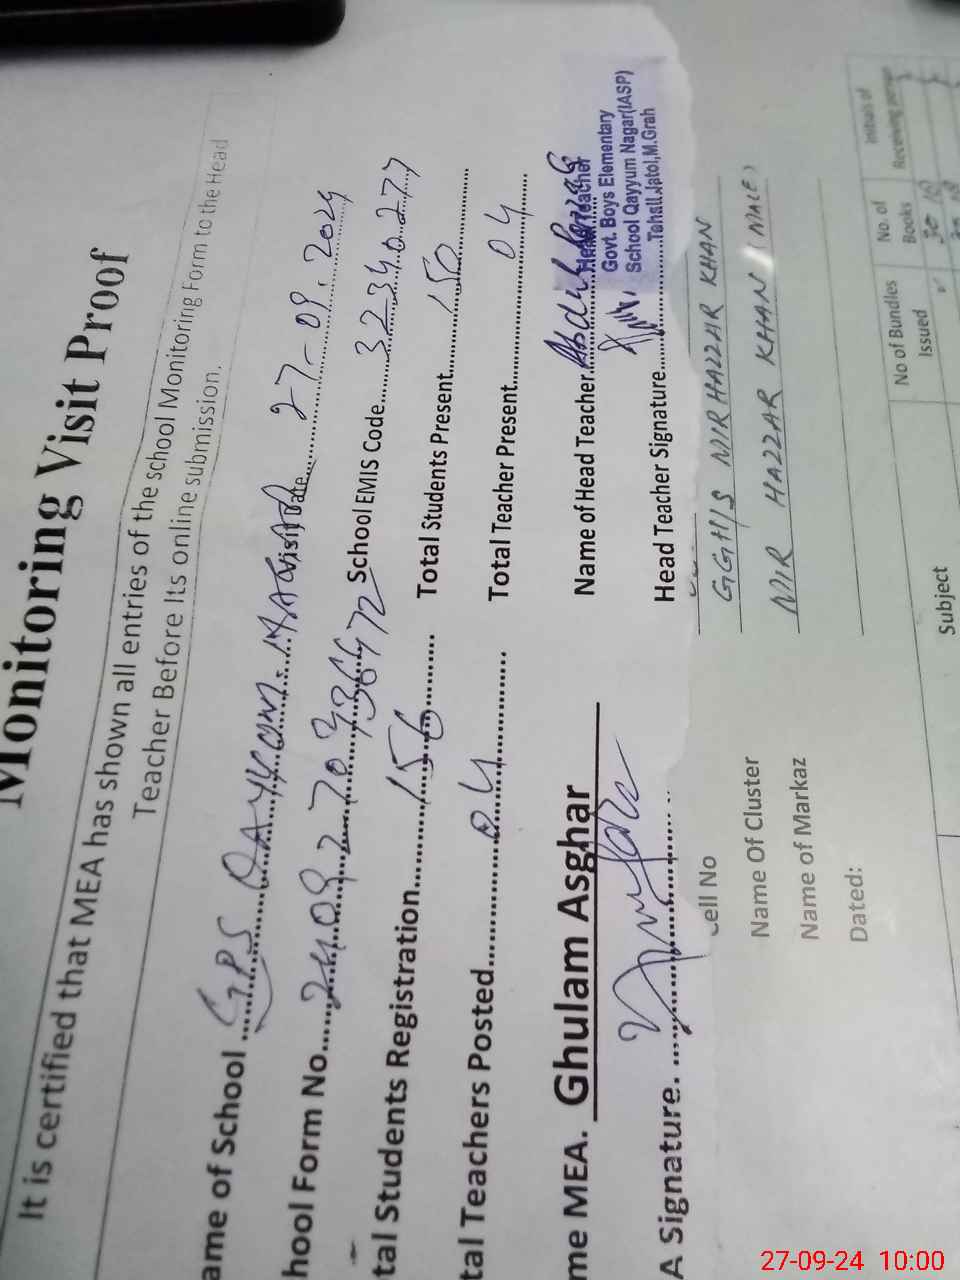 Monitoring Visit Proof
It is certified that MEA has shown all entries of the school Monitoring Form to the Head
Teacher Before Its online submission.
ame of School ..... GPS QAYYUM NAGAR Visit Date..... 27-09.2024
hool Form No..... School EMIS Code..... 32340277
tal Students Registration..... 156 ..... Total Students Present..... 150
tal Teachers Posted..... 04 ..... Total Teacher Present..... 04
me MEA. Ghulam Asghar Name of Head Teacher..... Abdul Razzaq
A Signature. ..... Head Teacher Signature.....
Head Teacher
Govt. Boys Elementary
School Qayyum Nagar(IASP)
Tehsil Jatoi, M.Grah
Cell No
Name Of Cluster GGH/S NIR HAZZAR KHAN
Name of Markaz NIR HAZZAR KHAN (MALE)
Dated:
Subject
No of Bundles
Issued
No. of
Books
Initials of
Receiving person
30
27-09-24 10:00